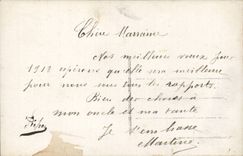 Chère Marraine
Nos meilleurs vœux pour
1919 espérons qu'elle sera meilleure
pour nous sous tous les rapports.
Bien des choses à
mon oncle et ma tante
Je t'embrasse
Martine